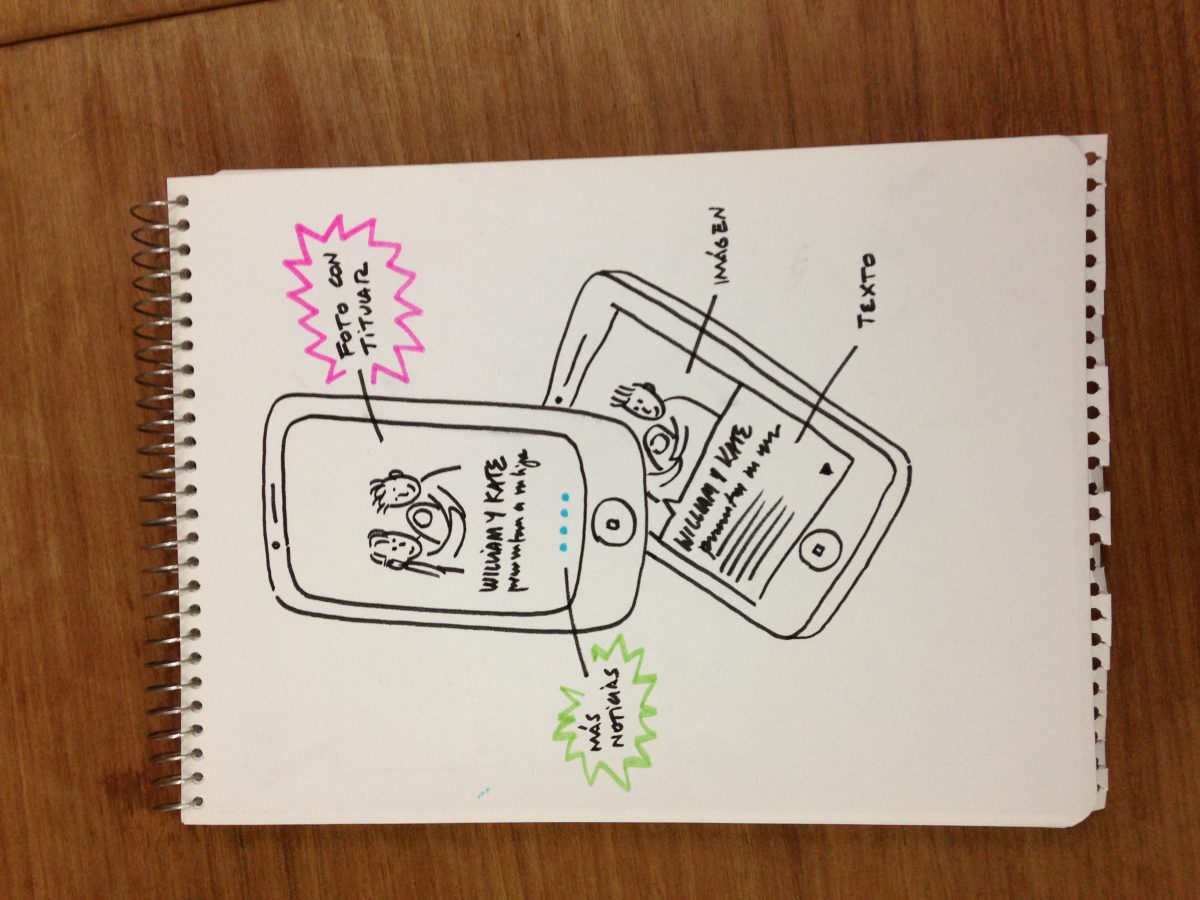 FOTO CON
TITULAR
WILLIAM Y KATE
presentan a su hijo
MÁS
NOTICIAS
IMÁGEN
TEXTO
WILLIAM Y KATE
presentan su